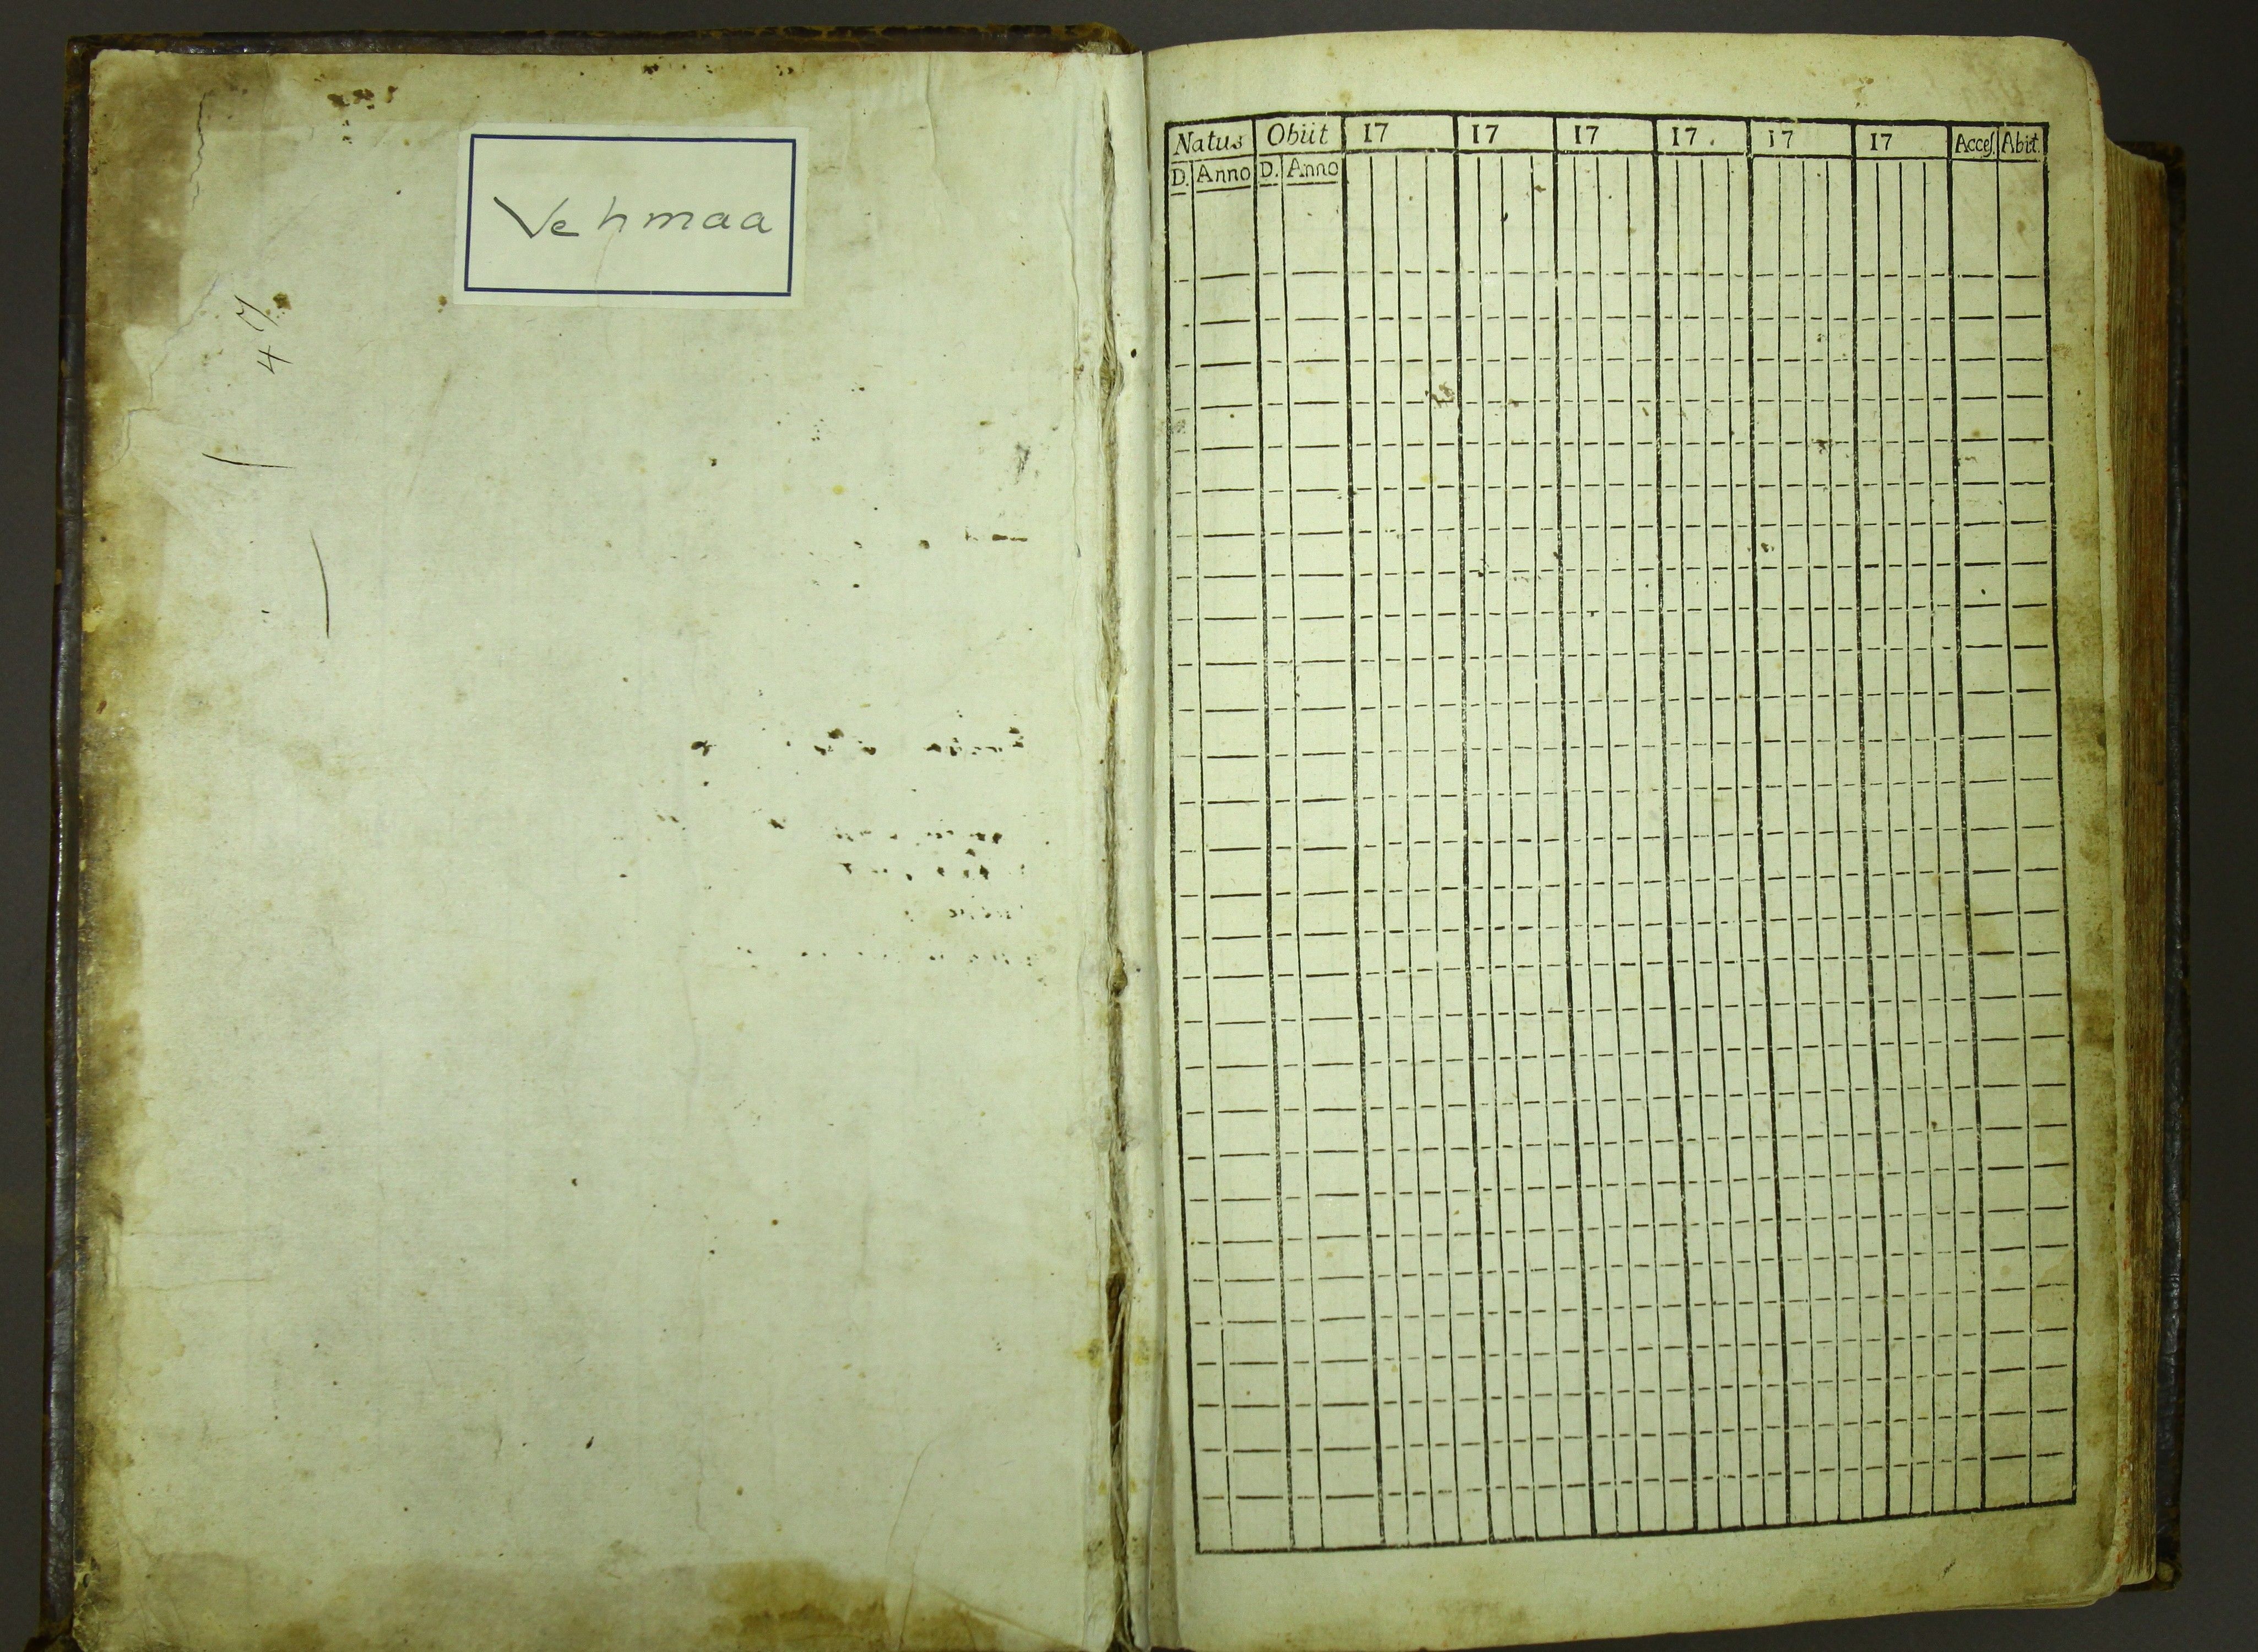 Vehmaa
Natus Obiit 17 17 17 17. 17 17 Acces. Abit.
D. Anno D. Anno